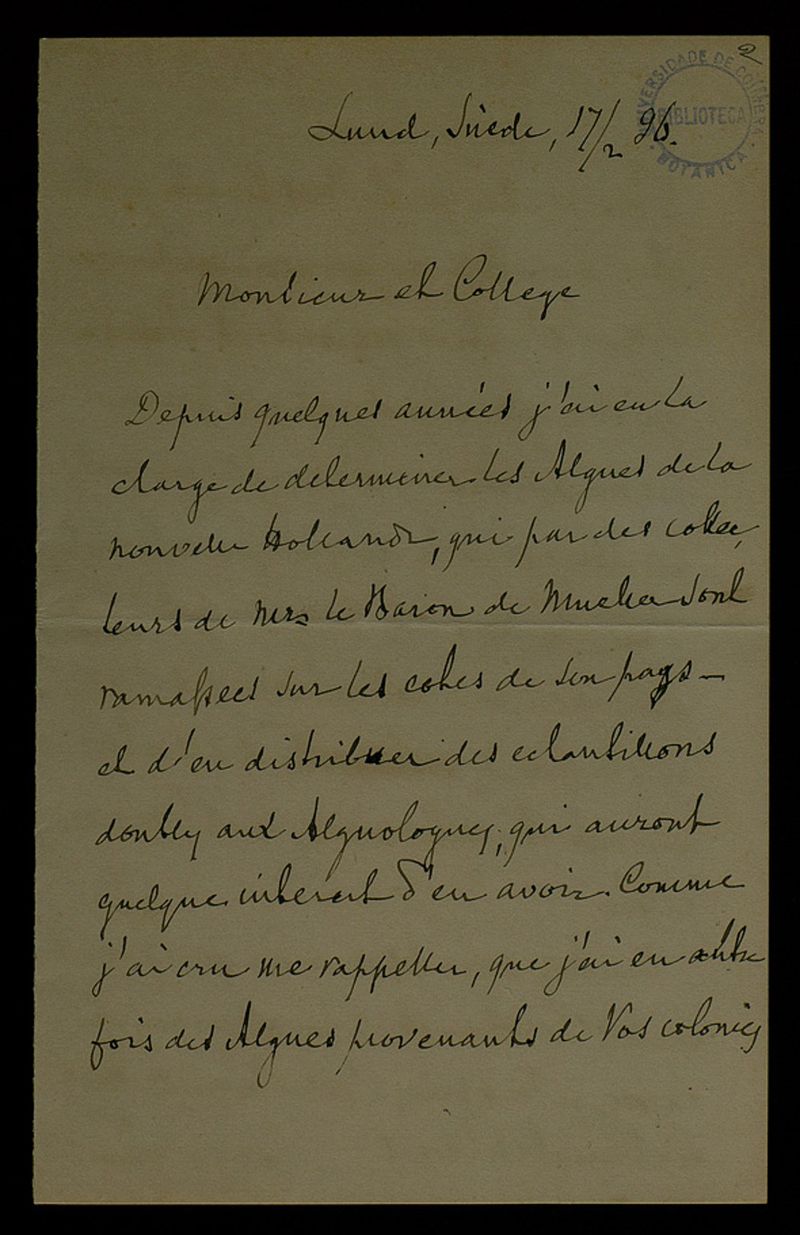 2
UNIVERSIDADE DE COIMBRA
BIBLIOTECA
BOTANICA
Lund, Suède, 17/2 96.
Monsieur et College
Depuis quelques années j'ai eu la
charge de determiner les Algues de la
nouvelle Hollande, qui par des collec
teurs de Mrs le Baron de Mueller sont
ramassées sur les cotes de son pays —
et d'en distribuer des echantillons
doubles aux Algologues, qui auront
quelque interest d'en avoir. Comme
j'ai cru me rappeller, que j'ai eu autre
fois des Algues provenants de Vos colonies